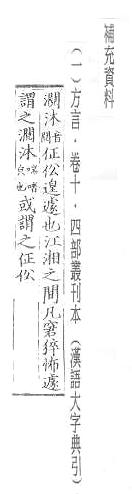 補充資料
(一)方言·卷十·四部叢刊本(漢語大字典引)
沭征伀遑遽也江湘之間凡窘猝怖遽
謂之沭或謂之征伀